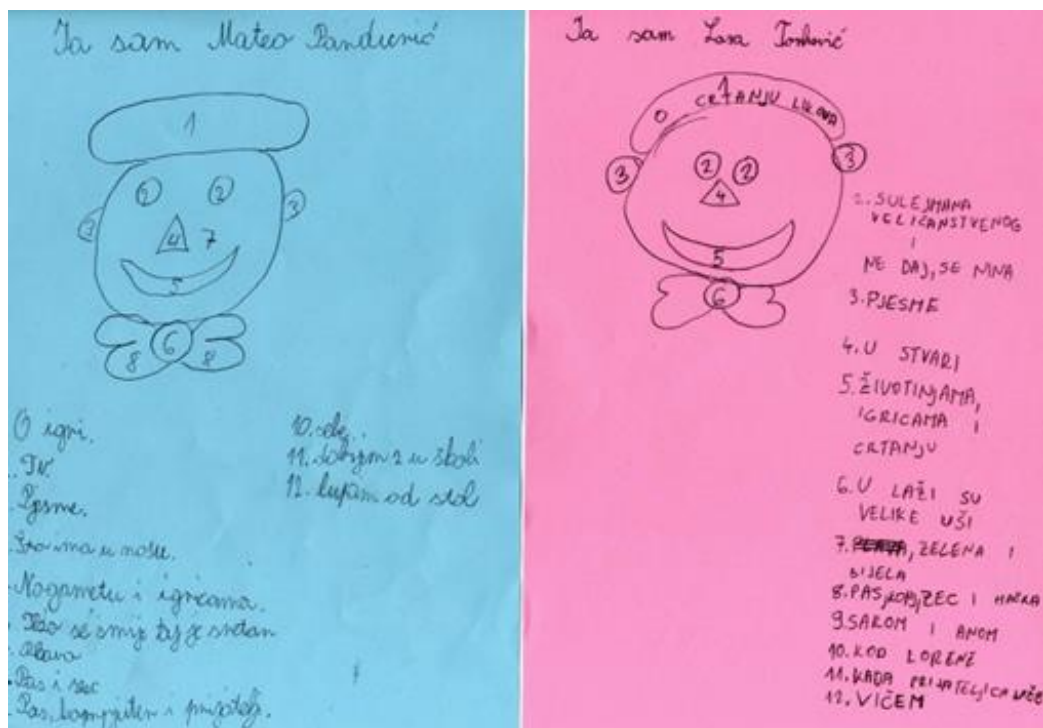 Ja sam Mateo Pandurić
1
2 2
3 3
4 7
5
6
8 8
O igri.
TV.
Pjesme.
u
Nogometu i igricama.
se smije taj je sretan
Plava
Pas i zec
Pas, kompjuter i prijatelji.
10.
11. dobijem 2 u školi
12. lupam od stol
Ja sam
1
O CRTANJU LIKOVA
3 3
2 2
4
5
6
2. SULEJMANA
VELIČANSTVENOG
I
NE DAJ, SE NINA
3. PJESME
4. U STVARI
5. ŽIVOTINJAMA,
IGRICAMA I
CRTANJU
6. U LAŽI SU
VELIKE UŠI
7. ZELENA I
BIJELA
8. PAS, ZEC I MAČKA
9. SAROM I ANOM
10. KOD LORENE
11. KADA PRIJATELJICA
12. VIČEM